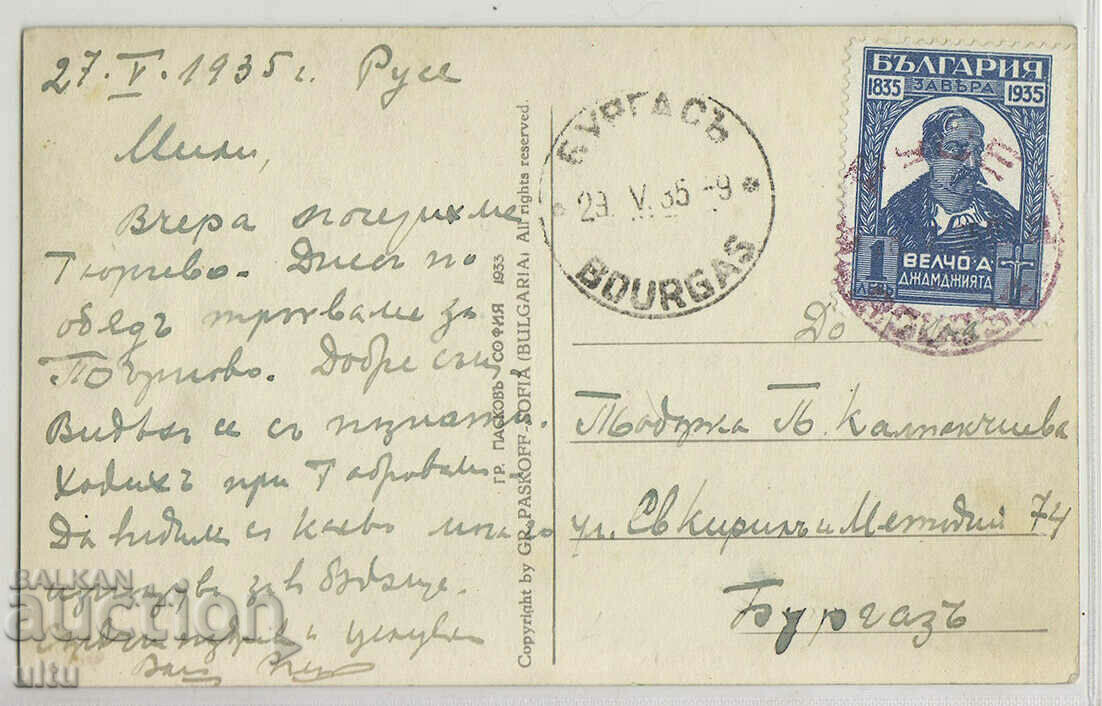 27. V. 1935 г. Русе
Мили,
Вчера посетихме
Гюргево. Днесъ по
обядъ тръгваме за
Търново. Добре съм
Видяхъ се съ познати.
Ходихъ при Габровали
Да видим и какво
за в бъдеще.
и целувки
ГР. ПАСКОВЪ СОФИЯ 1933
Copyright by GR. PASKOFF-SOFIA (BULGARIA) All rights reserved.
БУРГАСЪ
29. V. 35 -9
BOURGAS
БЪЛГАРИЯ
1835 ЗАВѢРА 1935
1 ЛЕВЪ
ВЕЛЧО А.
ДЖАМДЖИЯТА
До
Тодорка П. Калпакчиева
ул. Св Кирилъ и Методий 74
Бургазъ
BALKAN
auction
ultu